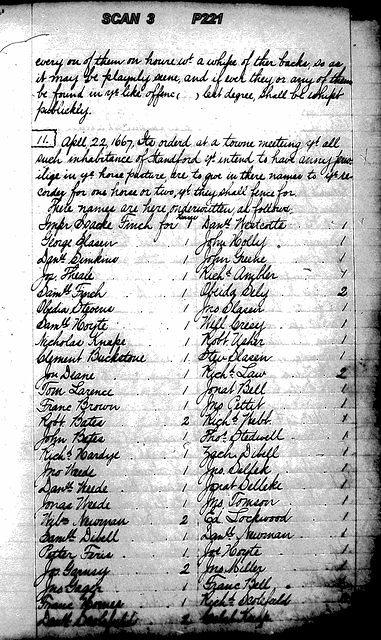 SCAN 3 P221
every on of them on houre wt a whipe of ther backs, so as
it may be playnly seene, and if ever they or any of them
be found in ye like offenc, ( ) last degree, shall be whipt
publickly.
11. Aprll 22, 1667, Its orderd at a towne meeting, yt all
such inhabitance of Standford yt intend to have anney
ilige in ye horse pasture, are to give in there names to ye re-
corder for one horse or two, yt they shall fence for.
There names are here onderwritten, as follows,
Isacke Finch for Danll Westcotte 1
George Slason 1 John Holly 1
Danll Simkins 1 John Greene 1
Jo Theale 1 Richd Ambler 1
Samll Fynch 1 2
Obedia Steevens 1 Jno Slason 1
Samll Hoyte 1 Will Creesy 1
Nicholas Knape 1 Robt Usher 1
Clement Buckstone 1 Ste Slason 1
Jon Deane 1 Richd Law 2
Tom Larence 1 Jonat Bell 1
Franc Brown 1 Jno Pettit 1
Robt Bates 2 Richd Webb 1
John Bates 1 Tho Stedwell 1
Richd Hardye 1 Zach Dibell 1
Jno Weede 1 Jno Sellek 1
Danll Weede 1 Jonat Selleke 1
Jonas Weede 1 Jno Tomson 1
Newman 2 Ed Lockwood 1
Samll Dibell 1 Danll Newman 1
Peeter Feris 1 Jos Hoyte 1
Jos Garnsy 2 Jno Miller 1
Jno Gager 1 Franc Bell
Franc Holmes 1 Richd Scolefeld
Danll Scolefeld 2 Caleb Knap